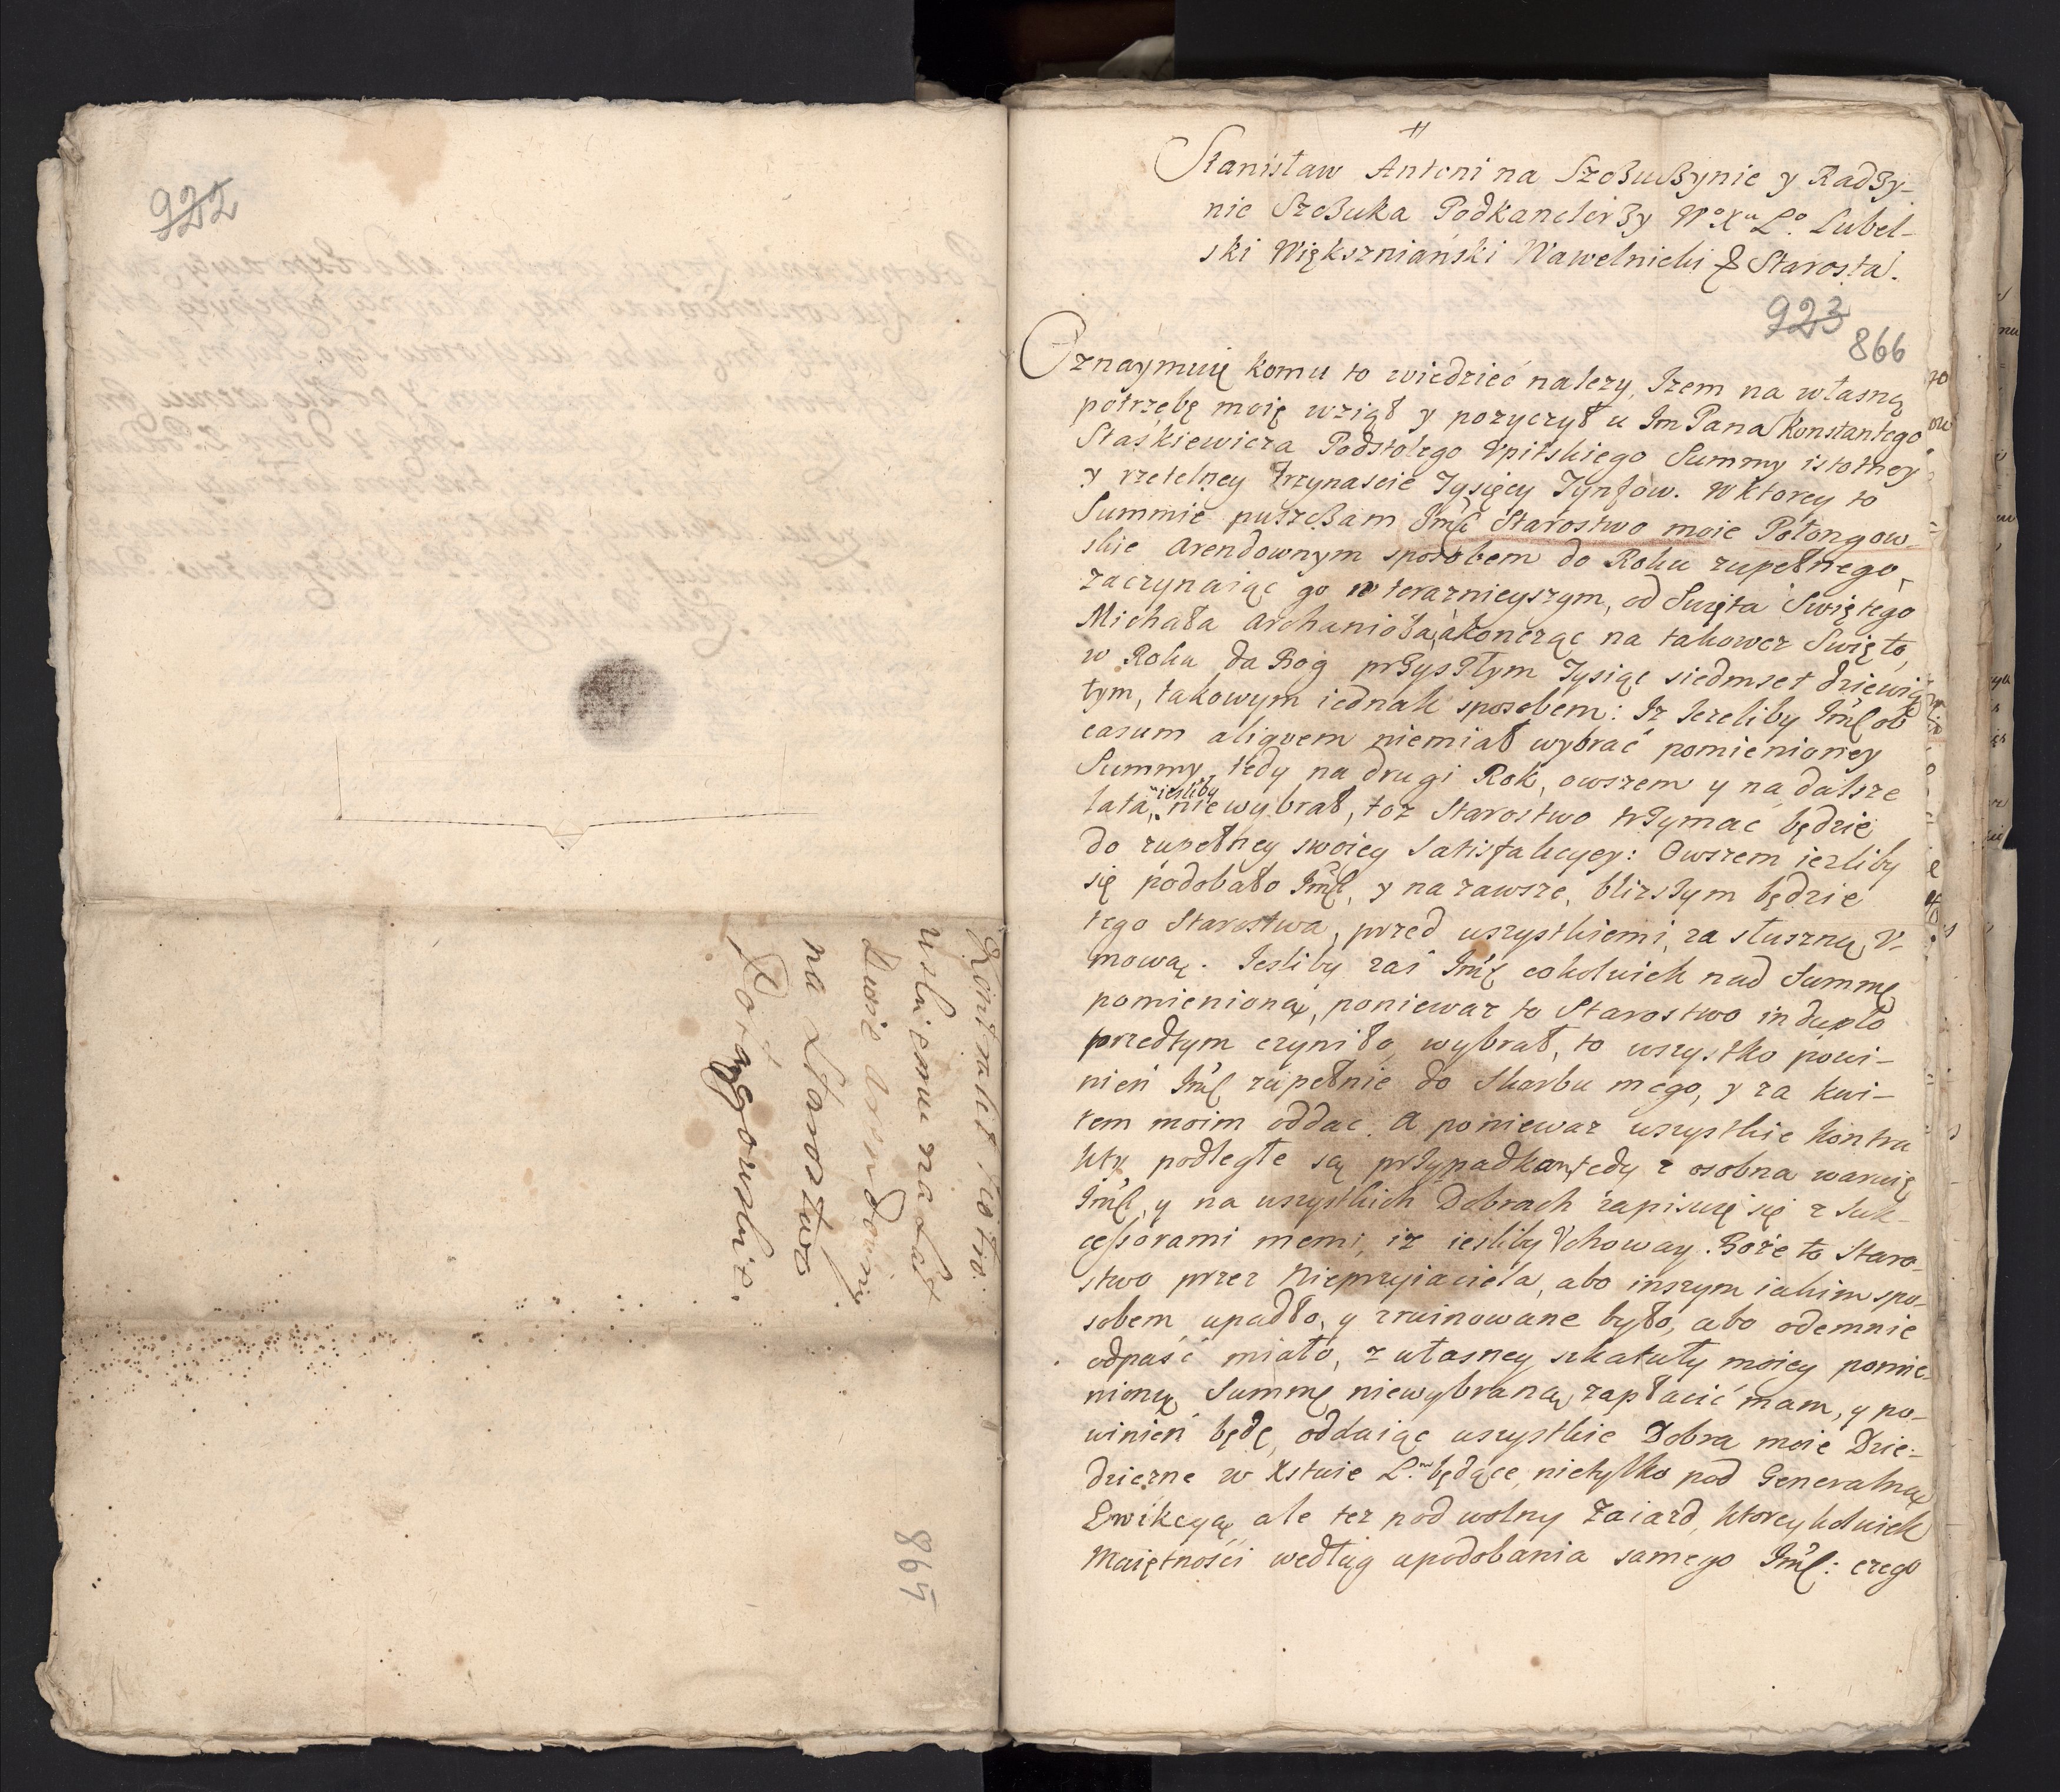 922
Kontrakt
na
Starostwo
865
Stanisław Antoni na Szczuczynie y Radzy-
nie Szczuka Podkanclerzy W° Xa L° Lubel-
ski Większniański Wawelnicki & Starosta.
923
866
Oznaymuię komu to wiedzieć nalezy, Izem na własną
potrzebę moię wziął y pozyczył u Im Pana Konstantego
Staśkiewicza Podstolego Upitskiego Summy istotney
y rzetelney trzynascie Tysięcy Tynfow. W ktorey to
Summie puszczam Imć Starostwo moie Połongow-
skie arendownym sposobem do Roku zupełnego,
zaczynaiąc go w teraznieyszym, od Swięta Swiętego
Michała Archanioła, akoncząc na takowez Swięto,
w Roku da Bog przyszłym Tysiąc siedmset dziewią-
tym, takowym iednak sposobem: Iz Iezeliby Imć ob
casum aliqvem niemiał wybrać pomienioney
Summy, tedy na drugi Rok, owszem y na dalsze
lata, iesliby niewybrał, toz Starostwo trzymać będzie
do zupełney swoiey satisfakcyey: Owszem iezliby
się podobało Imć, y na zawsze, blizszym będzie
tego Starostwa, przed wszystkiemi, za słuszną V-
mową. Iesliby zaś Imć cokolwiek nad Summę
pomienioną, poniewaz to Starostwo in duplo
przedtym czyniło, wybrał, to wszystko powi-
nień Imć zupełnie do Skarbu mego, y za kwi-
tem moim oddac. A poniewaz wszystkie kontra
kty podległe są przypadkom, tedy z osobna waruię
Imć, y na wszystkich Dobrach zapisuię się z Suk-
cessorami memi, iz iesliby Vchoway Boże to Staro-
stwo przez Nieprzyiaciela, abo inszym iakim spo-
sobem upadło, y zruinowane było, abo odemnie
odpaść miało, z własney szkatuły moiey pomie-
nioną Summę niewybraną, zapłacić mam, y po-
winień będę, oddaiąc wszystkie Dobra moie Dzie-
dziczne w Xstwie L. będące, nietylko pod Generalną
Ewikcyą, ale tez pod wolny Zaiazd, ktoreykolwiek
Maiętności według upodobania samego Imć: czego